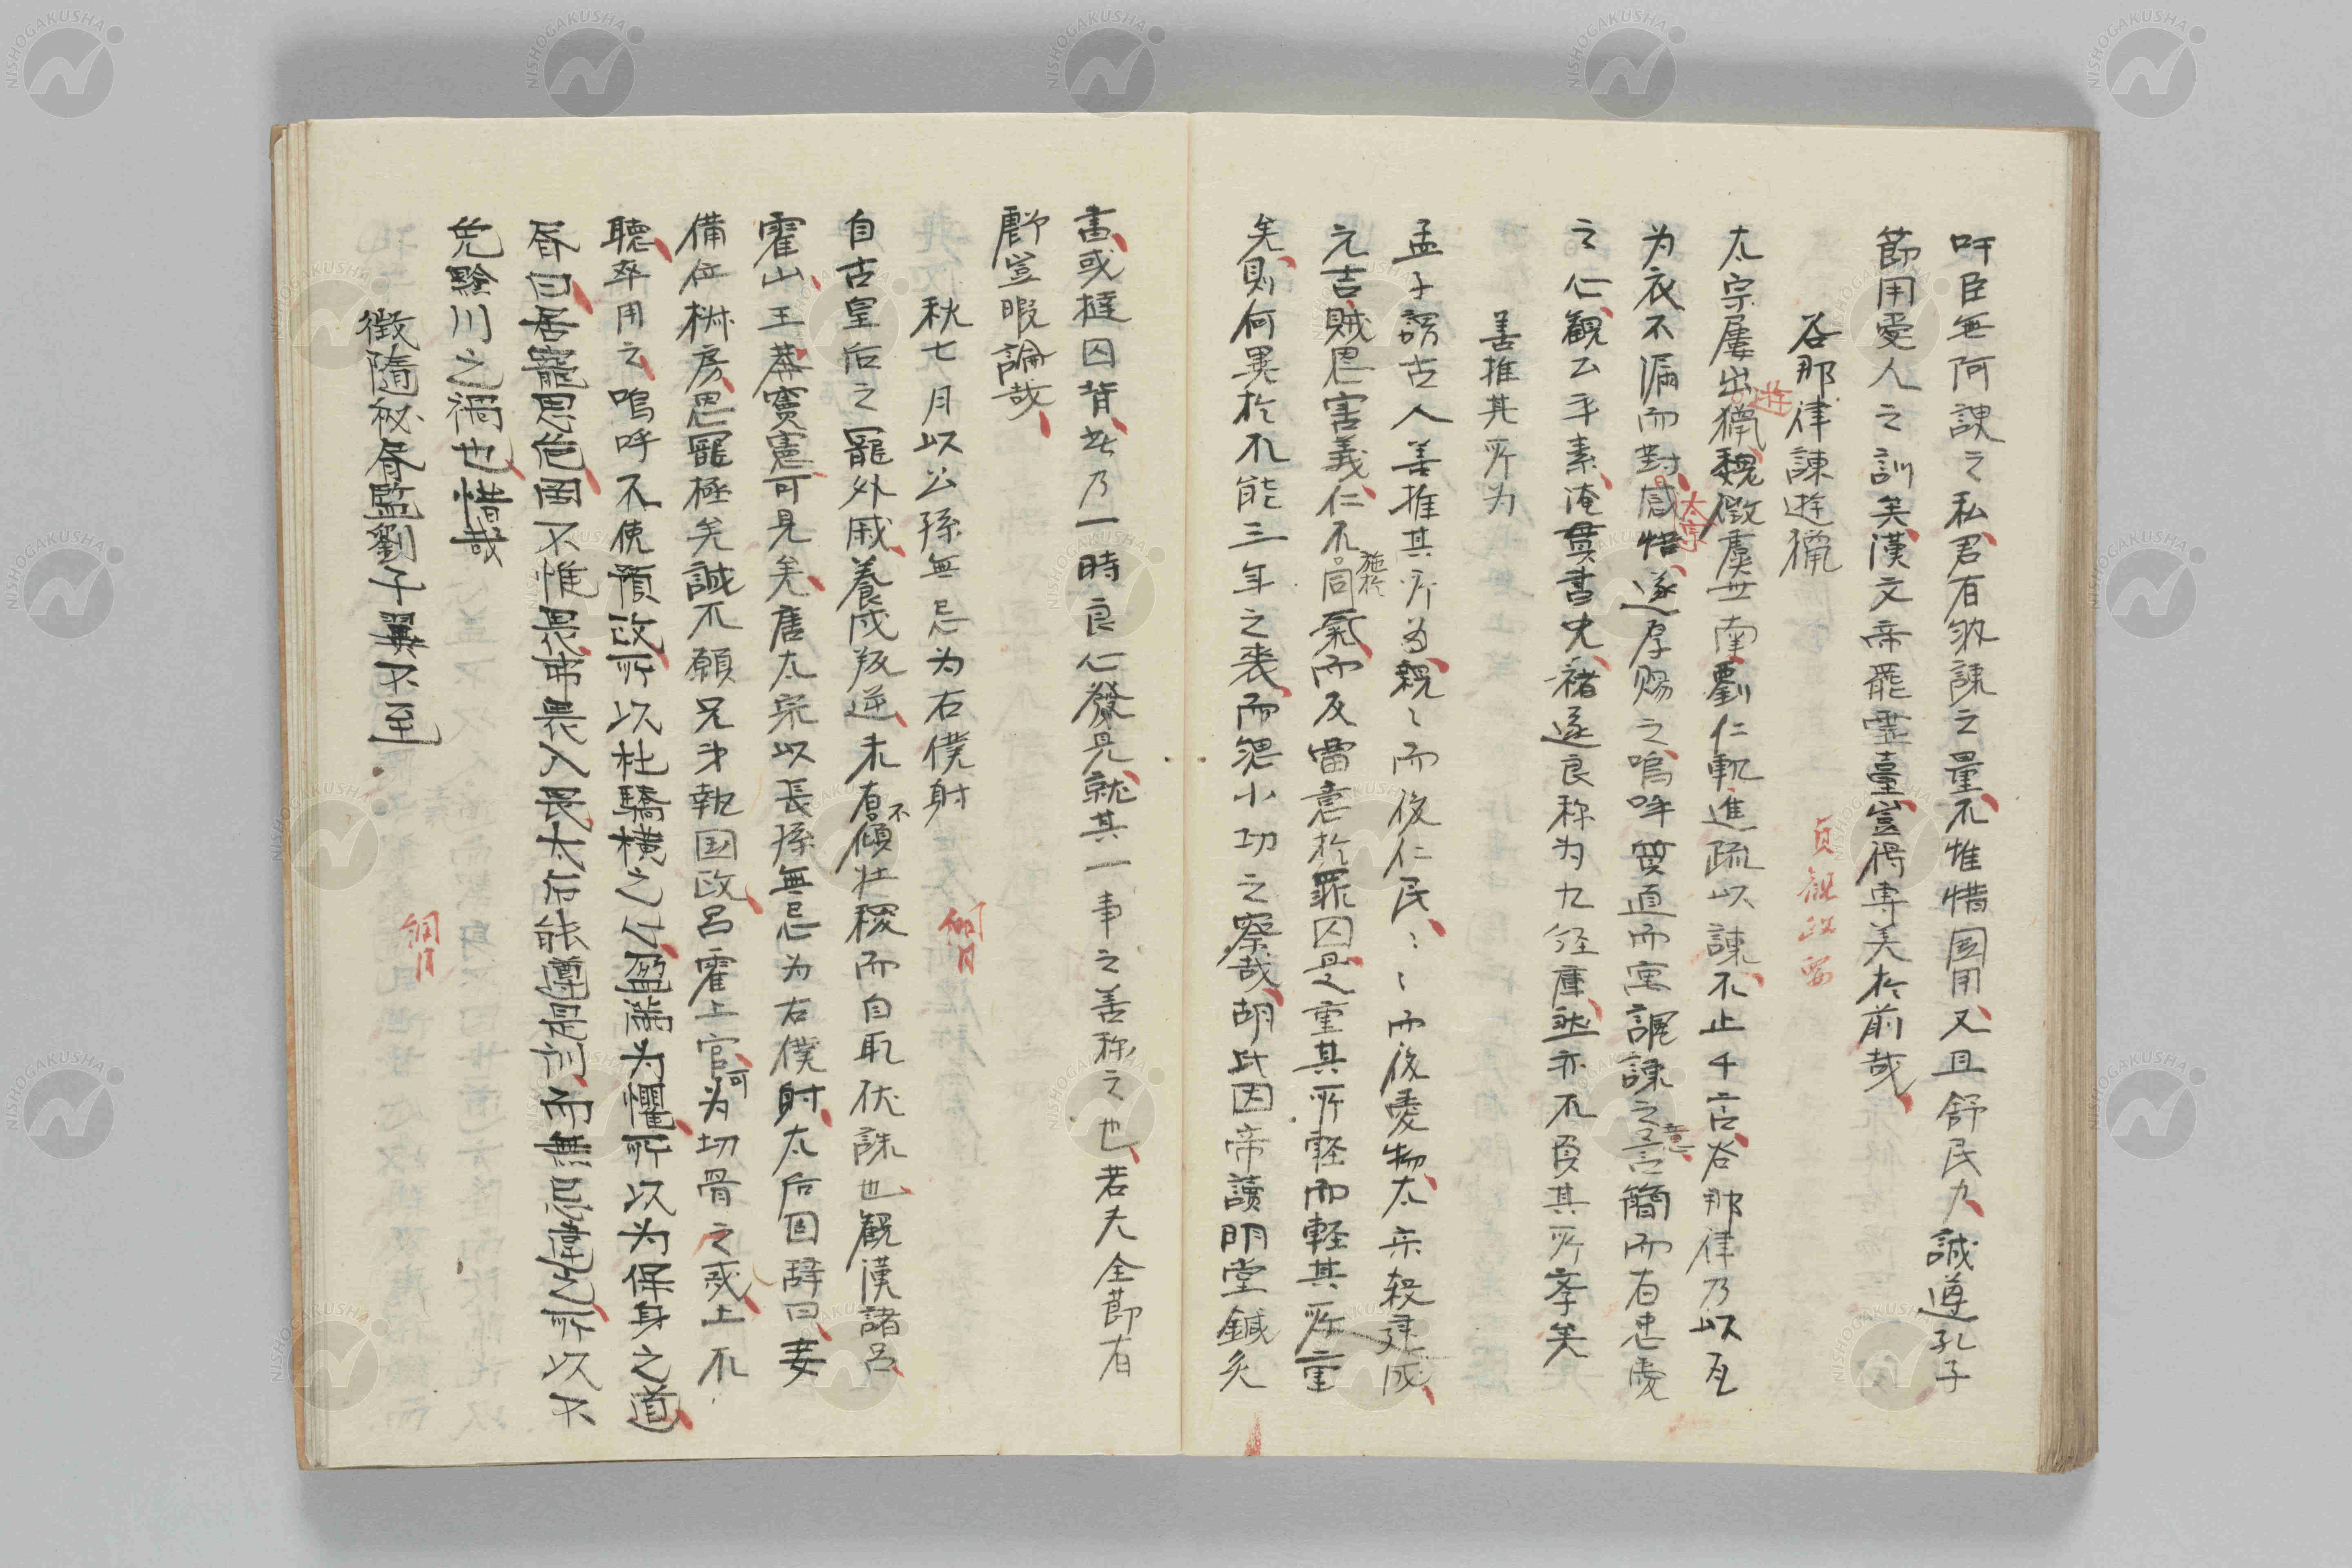 吁臣無阿諛之私君有納諫之量不惟惜国用又且舒民力誠遵孔子
節用愛人之訓矣漢文帝罷霊臺豈得專美於前哉
谷那律諫遊獵
貞観政要
太宗屢出遊獵魏徵虞世南劉仁軌進疏以諫不止千言谷那律乃以瓦
为衣不漏而對太宗感悟遂厚賜之嗚呼質直而寓諷諫之意言簡而有忠愛
之仁観公平素淹貫書史褚遂良称为九経庫然亦不負其所学矣
善推其所为
孟子謂古人善推其所为親〻而後仁民〻〻而後愛物太宗殺建成
元吉賊恩害義仁不施於同氣而反留意於罪囚是重其所軽而軽其所重
矣則何異於不能三年之喪而緦小功之察哉胡氏因帝讀明堂鍼灸
書或撻囚背此乃一時良心發見就其一事之善称之也若夫全節有
虧豈暇論哉
秋七月以公孫無忌为右僕射
綱目
自古皇后之寵外戚養成叛逆未有不傾社稷而自取伏誅也観漢諸呂
霍山王莽竇憲可見矣唐太宗以長孫無忌为右僕射太后固辞曰妾
備位椒房恩寵極矣誠不願兄弟執国政呂霍上官可为切骨之戒上不
聴卒用之嗚呼不使預政所以杜驕横之心盈滿为懼所以为保身之道
昏曰居寵思危罔不惟畏弗畏入畏太后能遵是訓而無忌違之所以不
免黔川之禍也惜哉
徵隨秘書監劉子翼不至
綱目